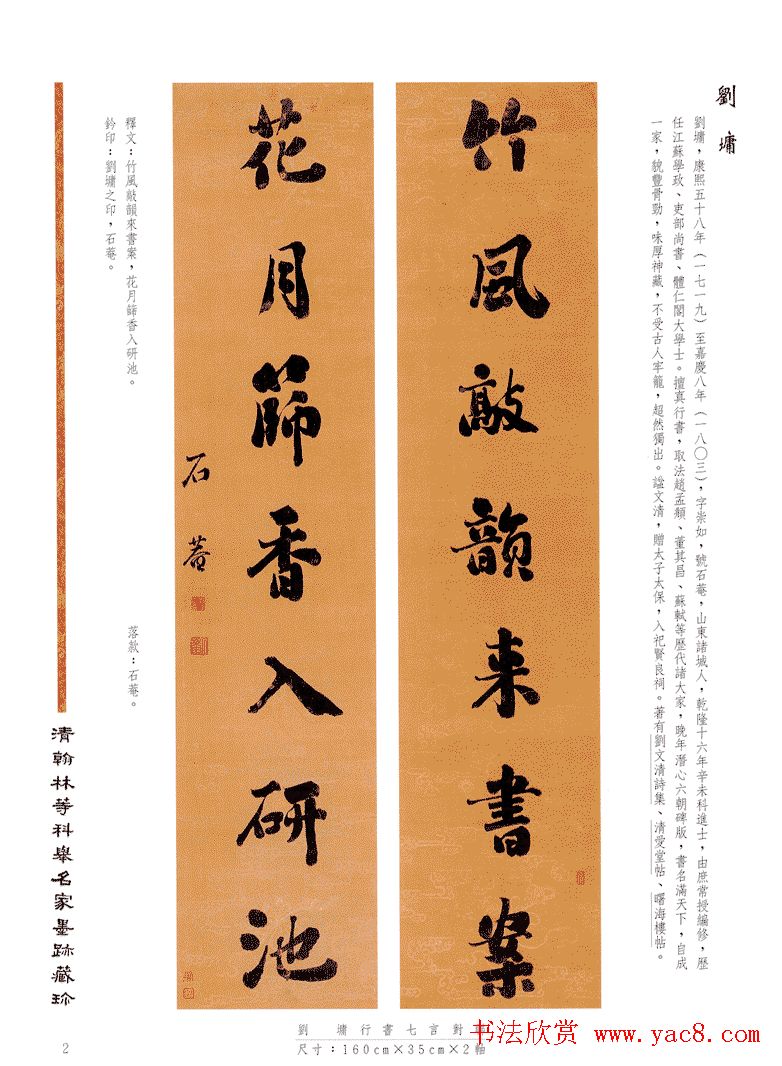 劉墉
劉墉，康熙五十八年（一七一九）至嘉慶八年（一八〇三），字崇如，號石菴，山東諸城人，乾隆十六年辛未科進士，由庶常授編修，歷
任江蘇學政、吏部尚書、體仁閣大學士。擅真行書，取法趙孟頫、董其昌、蘇軾等歷代諸大家，晚年潛心六朝碑版，書名滿天下，自成
一家，貌豐骨勁，味厚神藏，不受古人牢籠，超然獨出。謚文清，贈太子太保，入祀賢良祠。著有劉文清詩集、清愛堂帖、曙海樓帖。
竹風敲韻来書案
花月篩香入研池
石菴
釋文：竹風敲韻來書案，花月篩香入研池。
落款：石菴。
鈐印：劉墉之印，石菴。
清翰林等科舉名家墨跡藏珍
劉 墉行書七言對
尺寸：160cm×35cm×2軸
书法欣赏 www.yac8.com
2